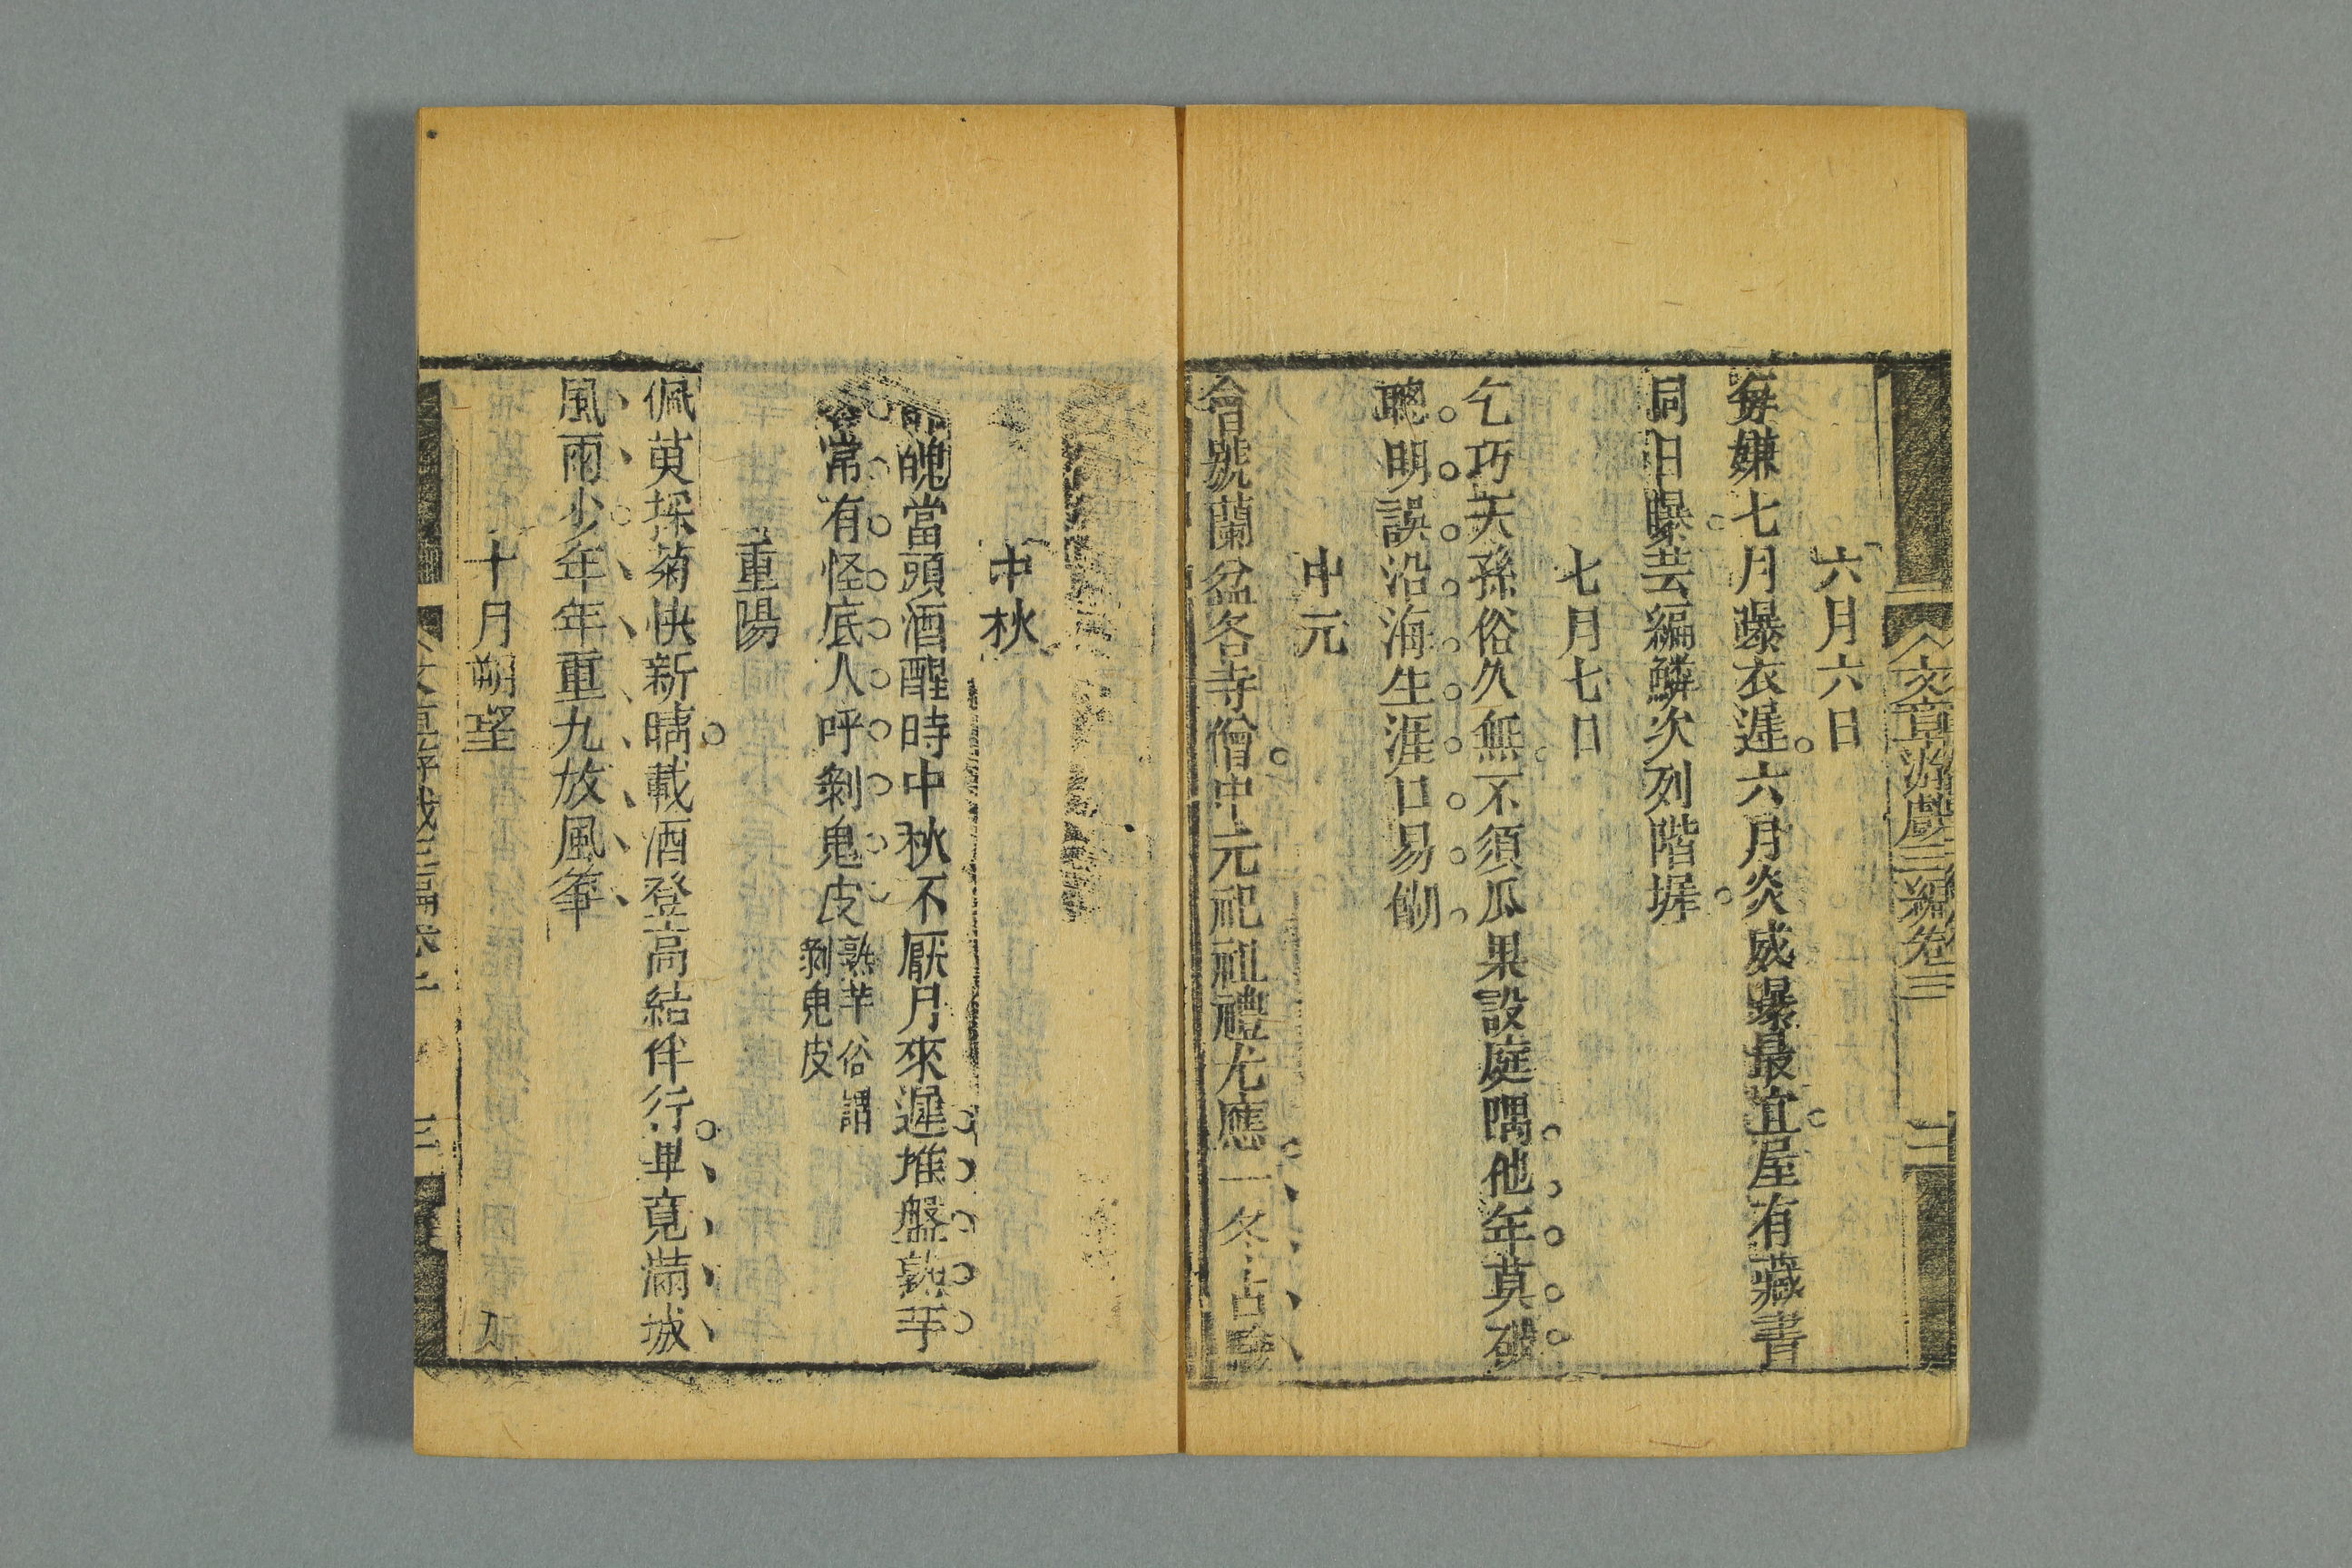 文章游戲三編卷三
二
六月六日
每嫌七月曝衣遲六月炎威曝最宜屋有藏書
同日曝芸編鱗次列階墀
七月七日
乞巧天孫俗久無不須瓜果設庭隅他年莫破
聰明誤沿海生涯口易餬
中元
會號蘭盆各寺僧中元祀祖禮尤應一冬占
中秋
魄當頭酒醒時中秋不厭月來遲堆盤熟芋
常有怪底人呼剝鬼皮
熟芋俗謂
剝鬼皮
重陽
佩萸採菊快新晴載酒登高結伴行畢竟滿城
風雨少年年重九放風箏
十月朔望